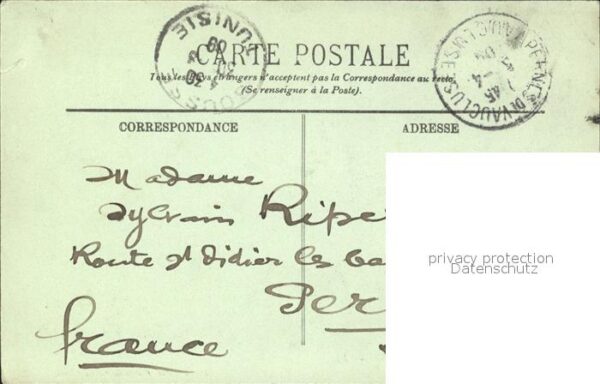 CARTE POSTALE
Tous les Pays étrangers n'acceptent pas la Correspondance au recto
(Se renseigner à la Poste).
CORRESPONDANCE
ADRESSE
TUNISIE
SOUSSE
PERNES
VAUCLUSE
Madame
Sylvain Ripe
Route St Didier les
Per
France
privacy protection
Datenschutz